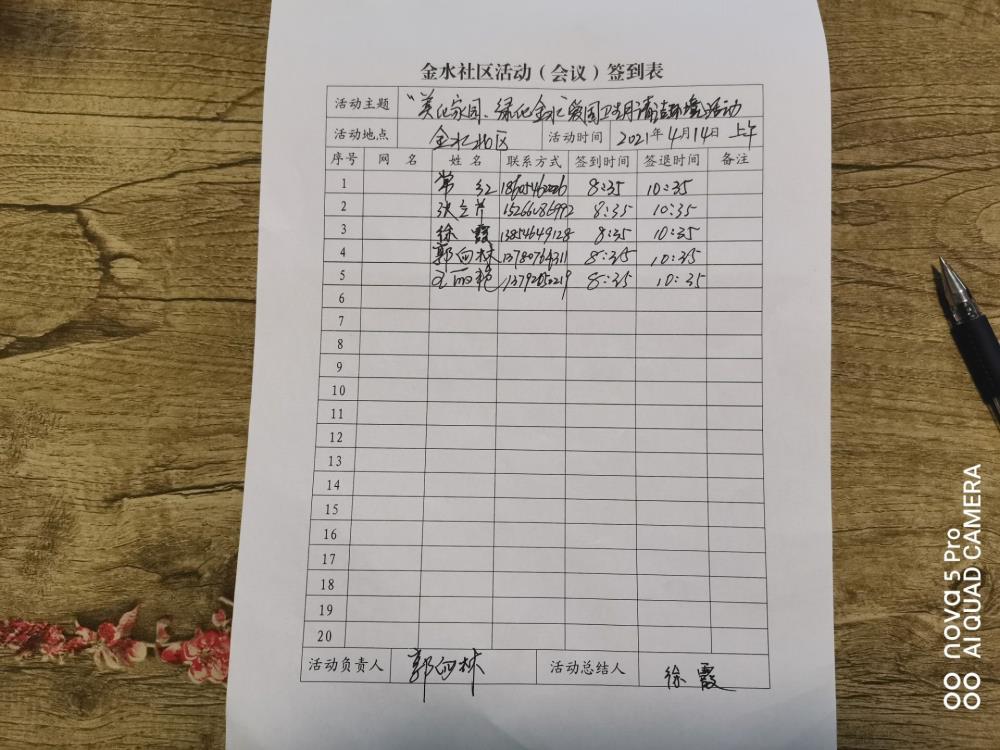 金水社区活动（会议）签到表
活动主题 "美化家园、绿化金水"爱国卫生月清洁环境活动
活动地点 金水北区 活动时间 2021年4月14日 上午
序号 网 名 姓 名 联系方式 签到时间 签退时间 备注
1 常 红 8:35 10:35
2 8:35 10:35
3 徐 霞 13854649128 8:35 10:35
4 郭向林 13780764311 8:35 10:35
5 8:35 10:35
6
7
8
9
10
11
12
13
14
15
16
17
18
19
20
活动负责人 郭向林 活动总结人 徐 霞
nova 5 Pro
AI QUAD CAMERA